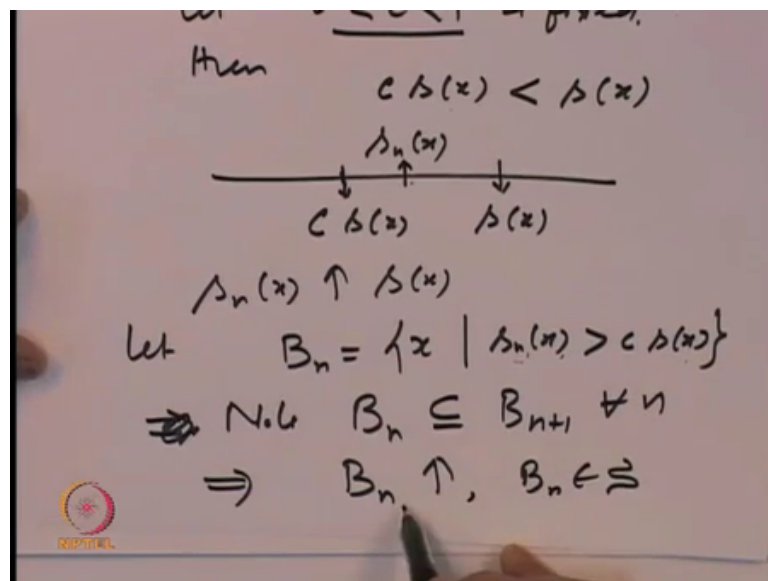 Let 0 < c < 1 fixed.
then
c s(x) < s(x)
s_n(x)
c s(x) s(x)
s_n(x) ↑ s(x)
Let B_n = {x | s_n(x) > c s(x)}
Note B_n ⊆ B_{n+1} ∀ n
⇒ B_n ↑, B_n ∈ S
NPTEL